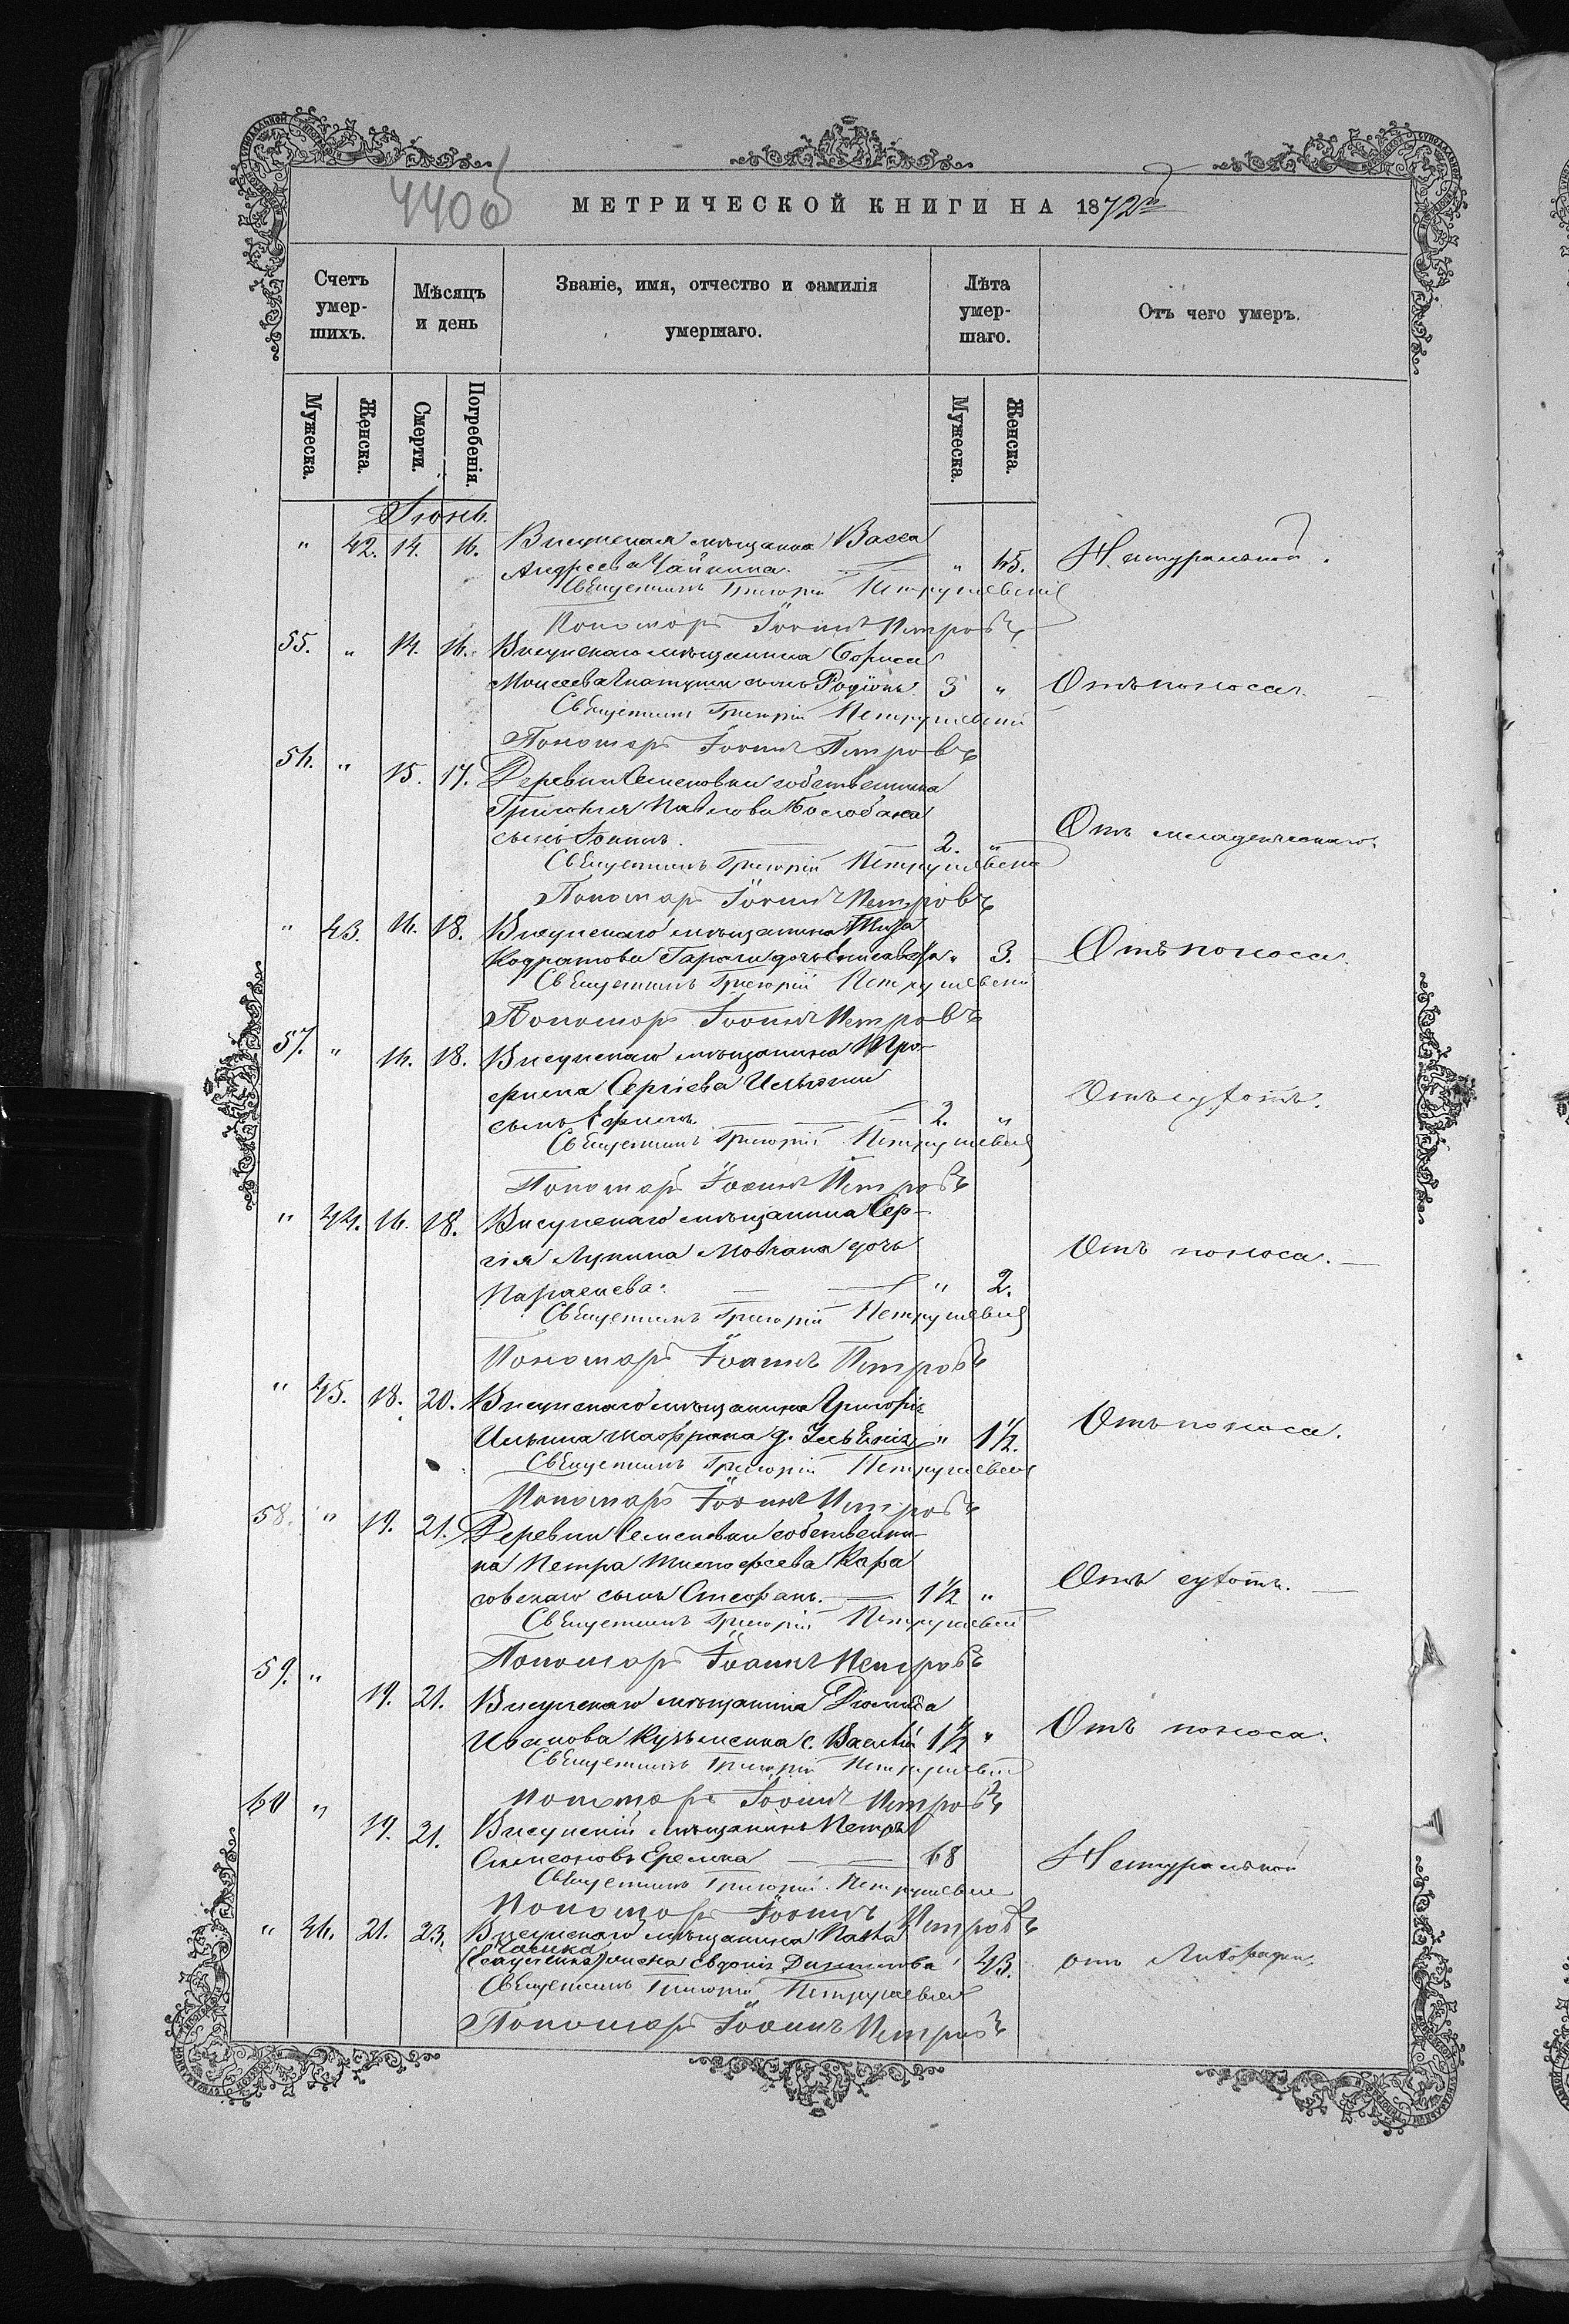 440об
МЕТРИЧЕСКОЙ КНИГИ НА 1872й
Счетъ умер-шихъ.
Мѣсяцъ и день
Званіе, имя, отчество и фамилія умершаго.
Лѣта умер-шаго.
Отъ чего умеръ.
Мужеска.
Женска.
Смерти.
Погребенія.
Мужеска.
Женска.
Іюнь.
" 42. 14. 16. Висунская мѣщанка Васса
Андреева Чайкина. " 65. Натуральной.
Священникъ Григорій Петрушевскій
Пономарь Іоаннъ Петровъ
55. " 14. 16. Висунскаго мѣщанина Бориса
Моисеева сынъ Родіонъ. 3 " Отъ поноса.
Священникъ Григорій Петрушевскій
Пономарь Іоаннъ Петровъ
56. " 15. 17. Деревни Семеновки собственника
Григорія Павлова
сынъ Іоаннъ. 2. " Отъ младенческаго.
Священникъ Григорій Петрушевскій
Пономарь Іоаннъ Петровъ
" 43. 16. 18. Висунскаго мѣщанина
Кодратова дочь Елисавета " 3. Отъ поноса.
Священникъ Григорій Петрушевскій
Пономарь Іоаннъ Петровъ
57. " 16. 18. Висунскаго мѣщанина Тро-
фима Сергіева
сынъ Ефимъ. 2. " Отъ сухотъ.
Священникъ Григорій Петрушевскій
Пономарь Іоаннъ Петровъ
" 44. 16. 18. Висунскаго мѣщанина Сер-
гія Лукина Мовчана дочь
Параскева. " 2. Отъ поноса.
Священникъ Григорій Петрушевскій
Пономарь Іоаннъ Петровъ
" 45. 18. 20. Висунскаго мѣщанина Григорія
Ильина Шафрана д. " 1½. Отъ поноса.
Священникъ Григорій Петрушевскій
Пономарь Іоаннъ Петровъ
58. " 19. 21. Деревни Семеновки собственни-
ка Петра Тимофеева Кара
совскаго сынъ Стефанъ. 1½ " Отъ сухотъ.
Священникъ Григорій Петрушевскій
Пономарь Іоаннъ Петровъ
59. " 19. 21. Висунскаго мѣщанина Діомида
Иванова Кузьменка с. Василій 1½ " Отъ поноса.
Священникъ Григорій Петрушевскій
Пономарь Іоаннъ Петровъ
60 " 19. 21. Висунскій мѣщанинъ Петръ
Симеоновъ Еремка 68 Натуральной
Священникъ Григорій Петрушевскій
Пономарь Іоаннъ Петровъ
" 46. 21. 23. Висунскаго мѣщанина Павла
жена Евдокія Димитрова 43. отъ
Священникъ Григорій Петрушевскій
Пономарь Іоаннъ Петровъ